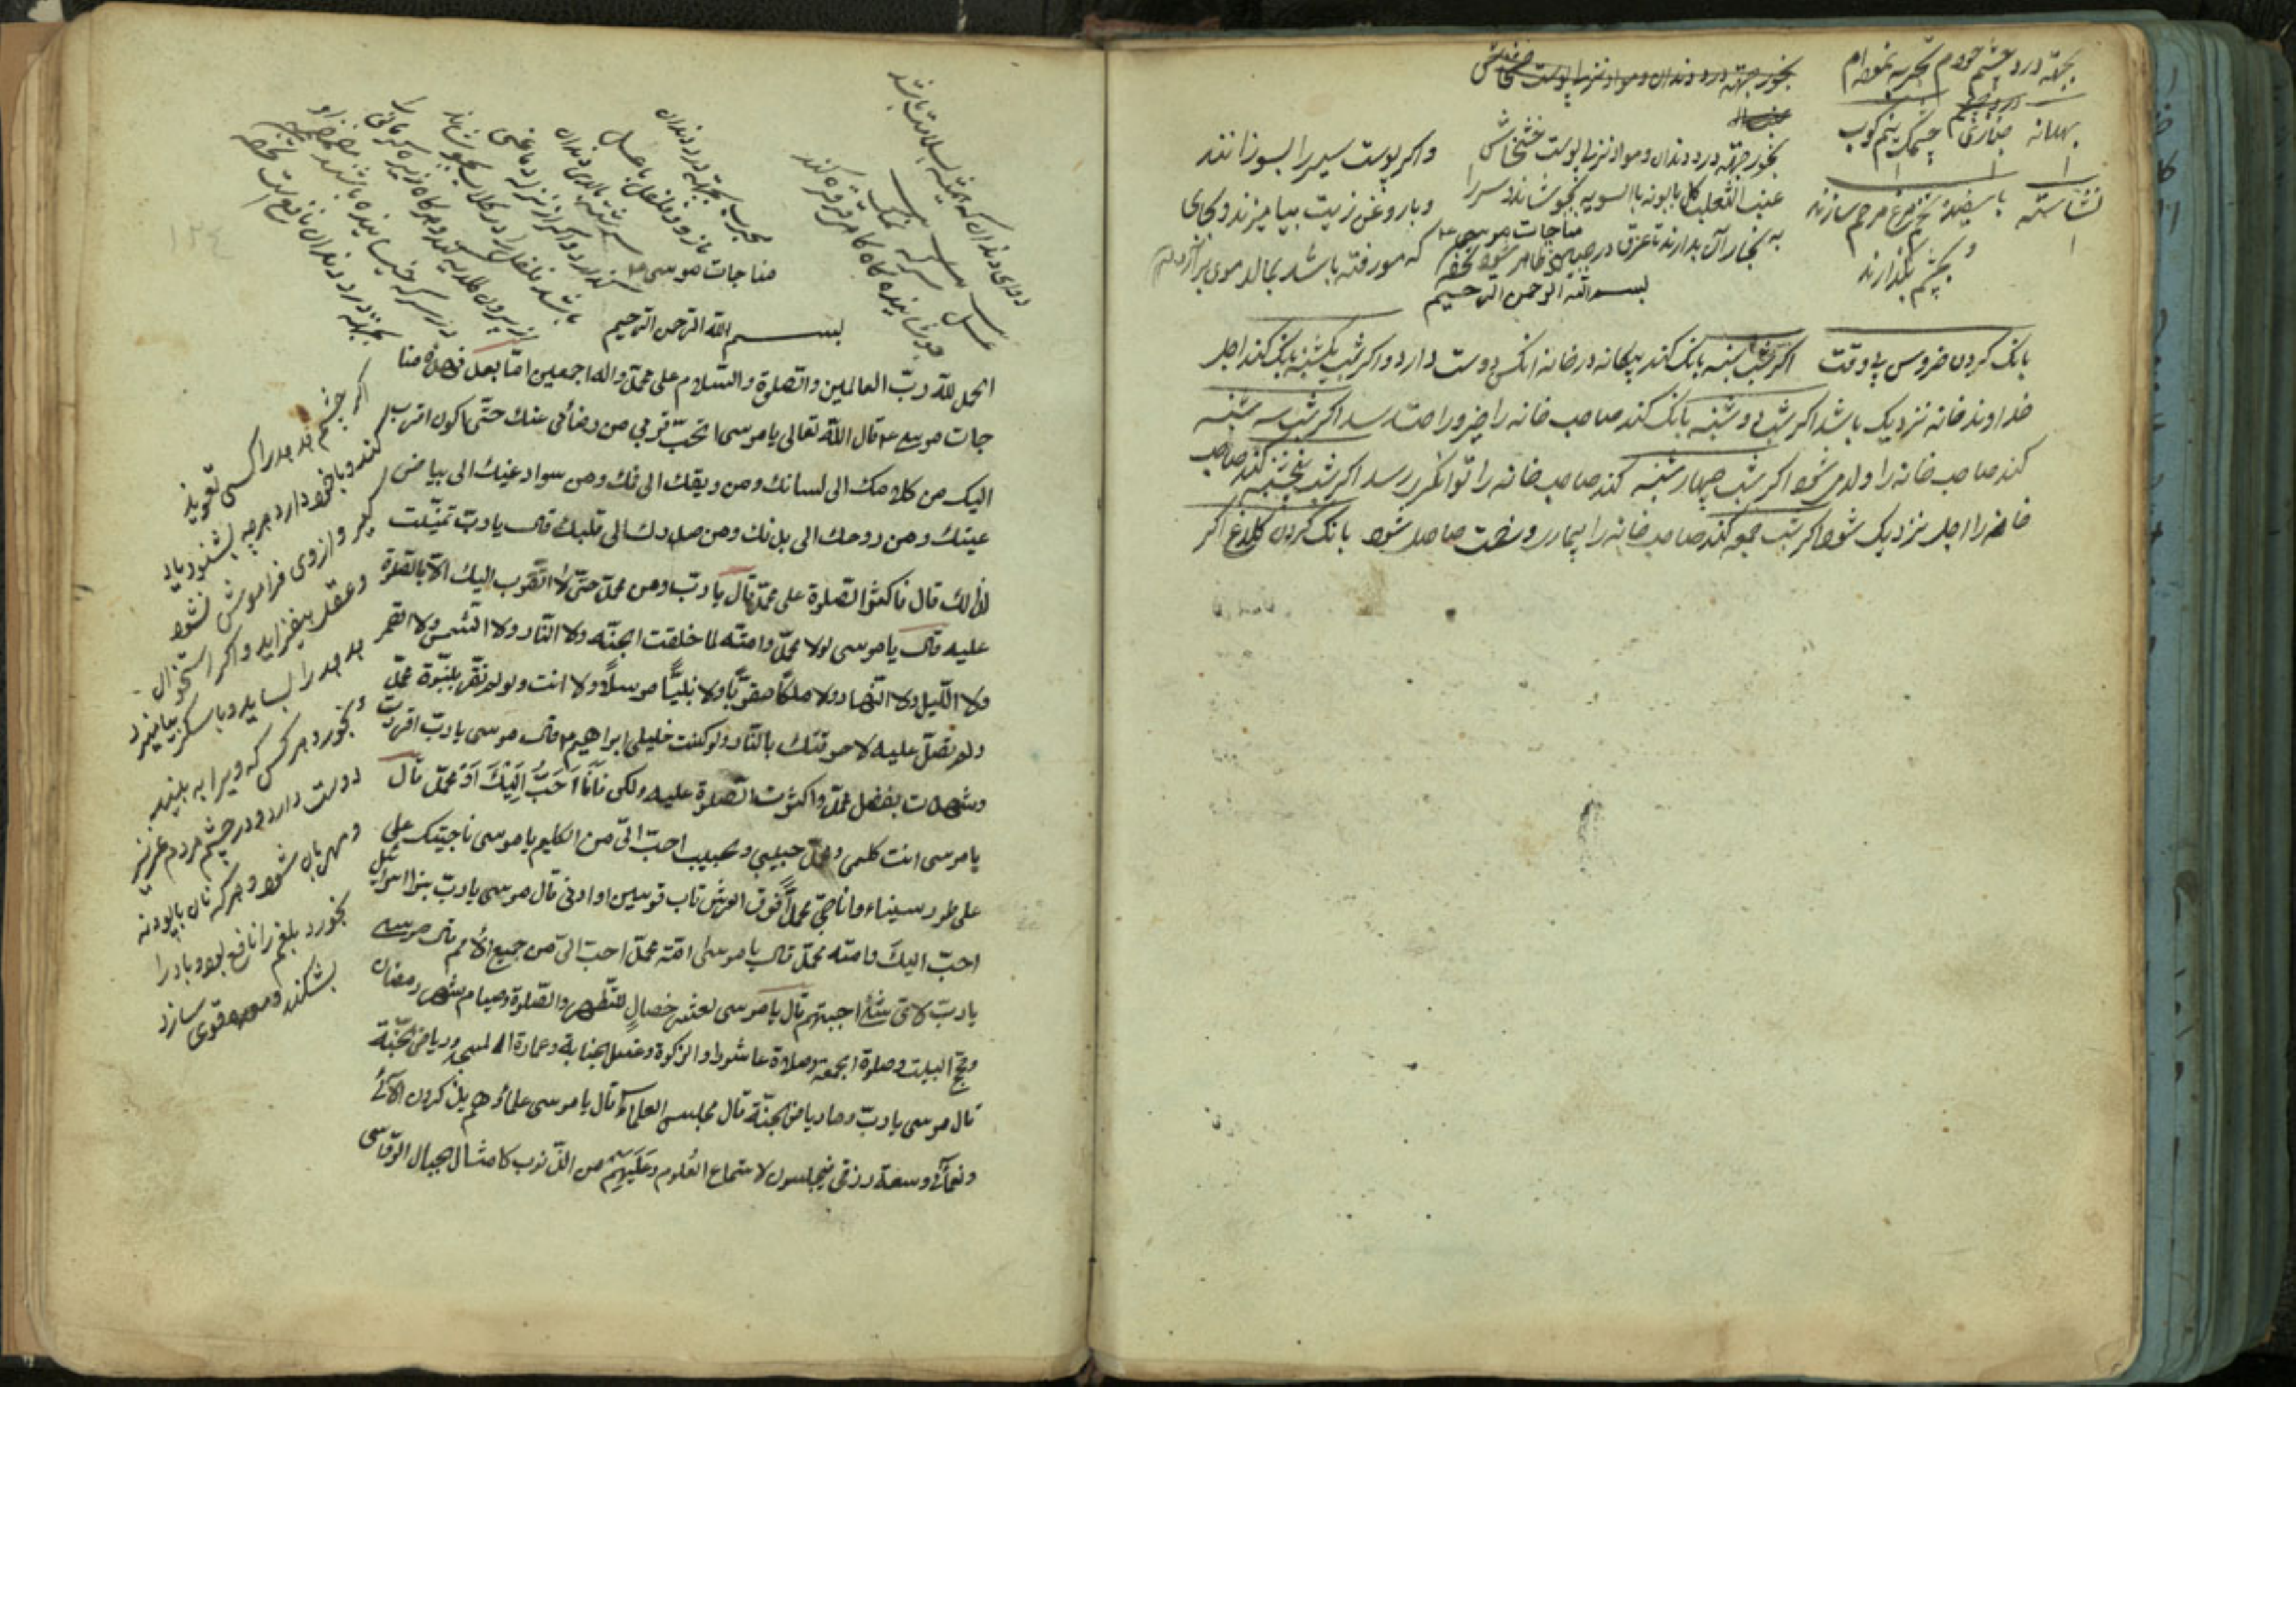 بجهة درد چشم خودم تجربه نموده‌ام
بهدانه
چشمک نیم کوب
نشاسته
با سفیده تخم مرغ مرهم سازند
و بچشم بگذارند
بخور جهة درد دندان و مواد نزله پوست خشخاش
بخور جهة درد دندان و مواد نزله پوست خشخاش
عنب الثعلب کل بابونه بالسویه بجوشاند و سر را
به بخار آن بدارند تا عرق در جبین ظاهر شود
مناجات موسی ع
بسم الله الرحمن الرحیم
و اکر پوست سیر را بسوزانند
و با روغن زیت بیامیزند و بجای
که مو رفته باشد بمالد موی بر
بانک کردن خروس بی وقت اکر شب شنبه بانک کند بیکانه در خانه انکس دوست دارد و اکر شب یکشنبه بانک کند اجل
خداوند خانه نزدیک باشد اکر شب دوشنبه بانک کند صاحب خانه را خیر و راحت رسد اکر شب سه شنبه
کند صاحب خانه را ولدی شود اکر شب چهارشنبه کند صاحب خانه را توانکری رسد اکر شب پنجشنبه کند صاحب
خانه را اجل نزدیک شود اکر شب جمعه کند صاحب خانه را بیماری و سخت حاصل شود بانک کردن کلاغ اکر
دوای دندان که
عسل سرکه نمک
جوشانیده کاه کاه غرغره کند
مجرب بجهة درد دندان
مازو و فلفل با عسل
سرشته بالای دندان
مناجات موسی ع
بسم الله الرحمن الرحیم
الحمد لله رب العالمین والصلوة والسلام علی محمد واله اجمعین اما بعد فهذه منا
جات موسی ع قال الله تعالی یا موسی اتحب قربی من رضائی عنک حتی اکون اقرب
الیک من کلامک الی لسانک ومن ریقک الی فمک ومن سواد عینک الی بیاض
عینک ومن روحک الی بدنک ومن صدرک الی قلبک قال یا رب تمنیت
لذلک قال فاکثر الصلوة علی محمد قال یا رب ومن محمد حتی لا اتقرب الیک الا بالصلوة
علیه قال یا موسی لولا محمد وامته لما خلقت الجنه ولا النار ولا الشمس ولا القمر
ولا اللیل ولا النهار ولا ملکا مقربا ولا نبیا مرسلا ولا انت ولو لم تقر بنبوة محمد
ولم تصل علیه لاحرقتک بالنار ولو کنت خلیلی ابراهیم ع قال موسی یا رب اقررت
وشهدت بفضل محمد واکثرت الصلوة علیه ولکن انا احب الیک او محمد قال
یا موسی انت کلیمی ومحمد حبیبی والحبیب احب الی من الکلیم یا موسی ناجیتک علی
علی طور سیناء واناجی محمدا فوق العرش قاب قوسین او ادنی قال موسی یا رب بنو اسرائیل
احب الیک وامته محمد قال یا موسی امة محمد احب الی من جمیع الامم قال موسی
یا رب لای شئ اجبتهم قال یا موسی لعشر خصال للتطهر والصلوة وصیام شهر رمضان
وحج البیت وصلوة الجمعة وصلاة عاشورا والزکوة وغسل الجنابة وعمارة المسجد وریاض الجنة
قال موسی یا رب وما ریاض الجنة قال مجلس العلماء قال یا موسی علماؤهم یذکرون الآئی
ونعمائی وسعة رزقی فیجلسون لاستماع العلوم وعلیهم من الذنوب کامثال الجبال الرواسی
اکر چشم هدهد را کسی تعویذ
کند و با خود دارد هر چه بشنود یاد
کیرد و از وی فراموش نشود
و عقل بیفزاید و اکر استخوان
هدهد را بساید و با سکر بیامیزد
و بخورد هر کس که ویرا به بیند
دوست دارد و در چشم مردم عزیز
و مهربان شود و هر که نان با پودنه
بخورد بلغم را نافع بود و باد را
بشکند و معده قوی سازد
١٢٤